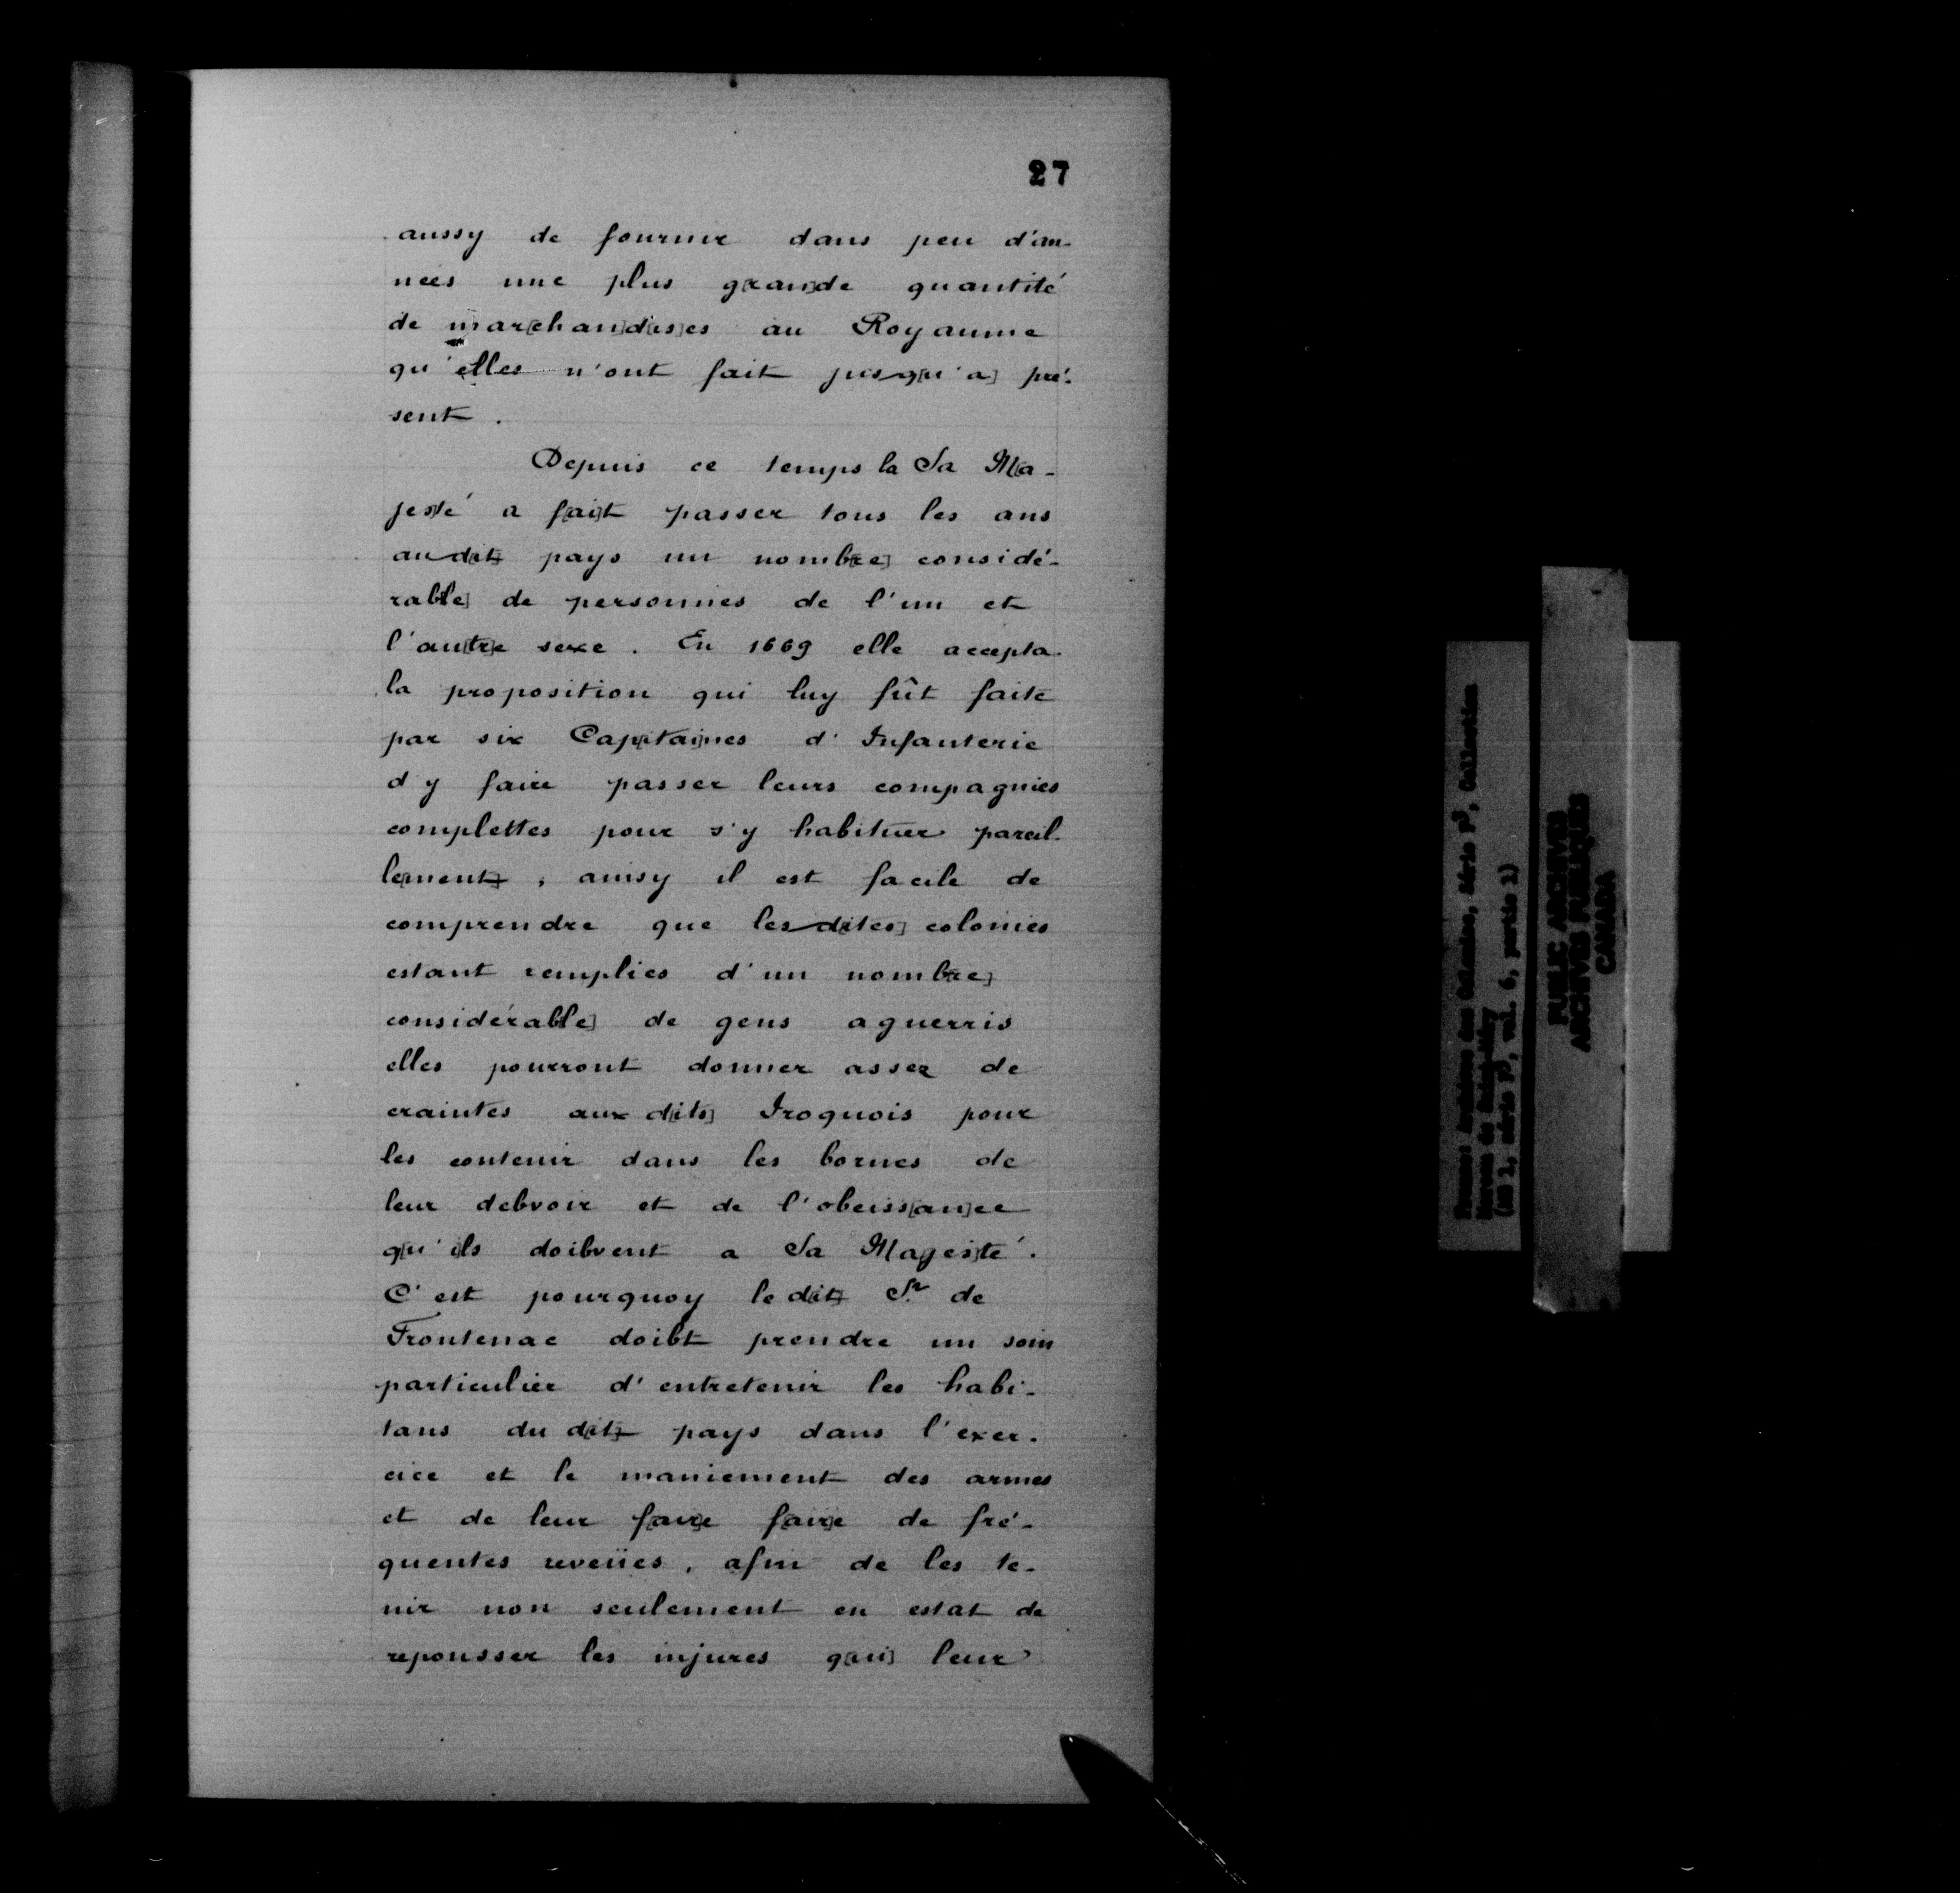 27
aussy de fournir dans peu d'an-
nees une plus g[ran]de quantité
de mar[chan]d[is]es au Royaume
qu'elles n'ont fait jusq[u'a] pré-
sent.
Depuis ce temps la Sa M[a-
jes]té a f[ai]t passer tous les ans
au d[it] pays un nomb[re] considé-
rab[le] de personnes de l'un et
l'au[tr]e sexe. En 1669 elle accepta
la proposition qui luy fût faite
par six Cap[itai]nes d'Infanterie
d'y faire passer leurs compagnies
complettes pour s'y habituer pareil-
le[ment], ainsy il est facile de
comprendre que les d[ites] colonies
estant remplies d'un nomb[re]
considérab[le] de gens aguerris
elles pourront donner assez de
craintes aux d[its] Iroquois pour
les contenir dans les bornes de
leur debvoir et de l'obeiss[an]ce
q[u'i]ls doibvent a Sa Mages]té.
C'est pourquoy le d[it] Sr de
Frontenac doibt prendre un soin
particulier d'entretenir les habi-
tans du d[it] pays dans l'exer-
cice et le maniement des armes
et de leur f[air]e f[air]e de fré-
quentes reveües, afin de les te-
nir non seulement en estat de
repousser les injures q[ui] leur
France: Archives des Colonies, Série F3, Collection
Moreau de Saint-Méry
(MG 1, série F3, vol. 6, partie 1)
PUBLIC ARCHIVES
ARCHIVES PUBLIQUES
CANADA